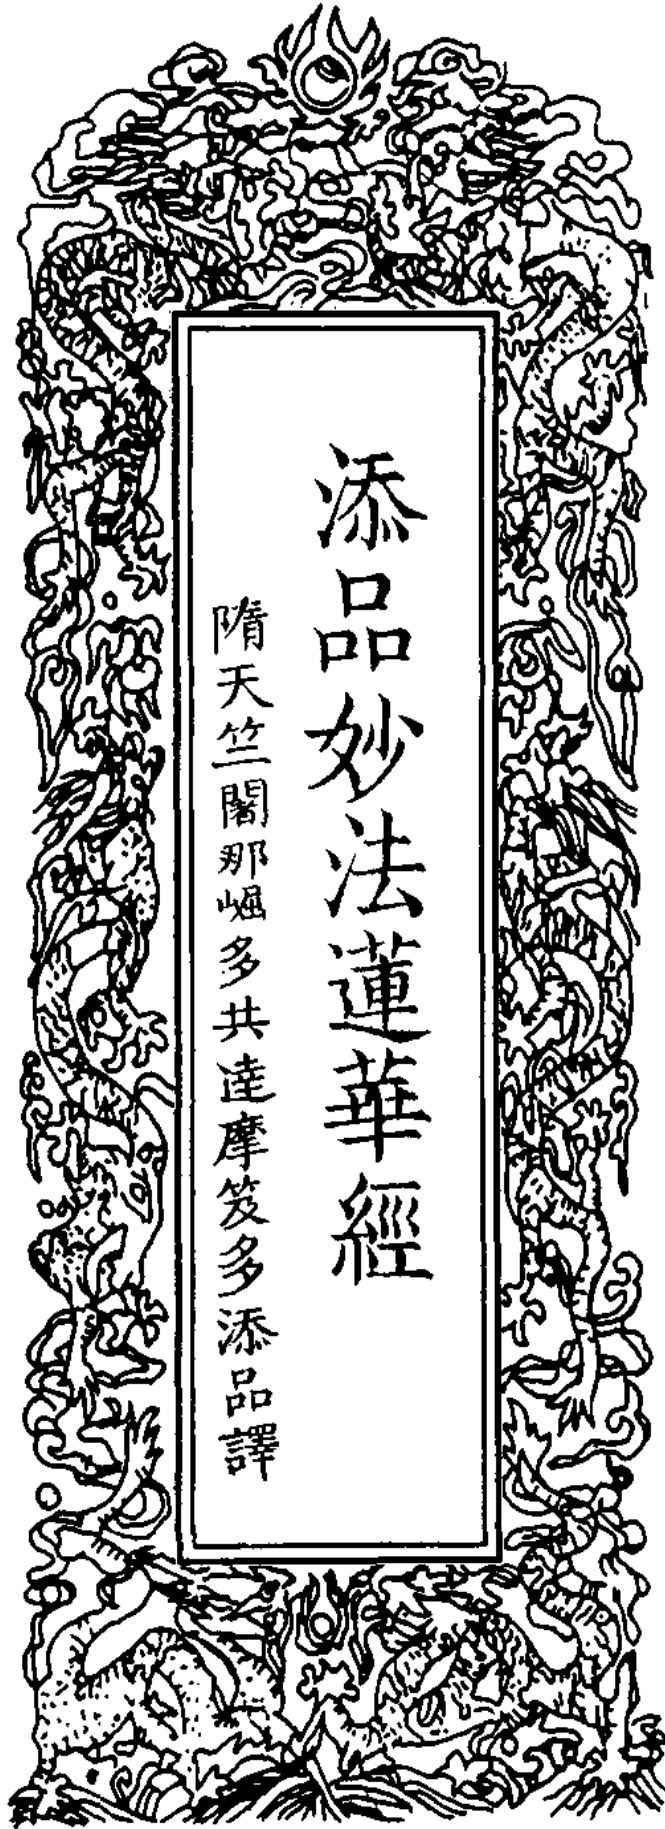 添品妙法蓮華經
隋天竺闍那崛多共達摩笈多添品譯